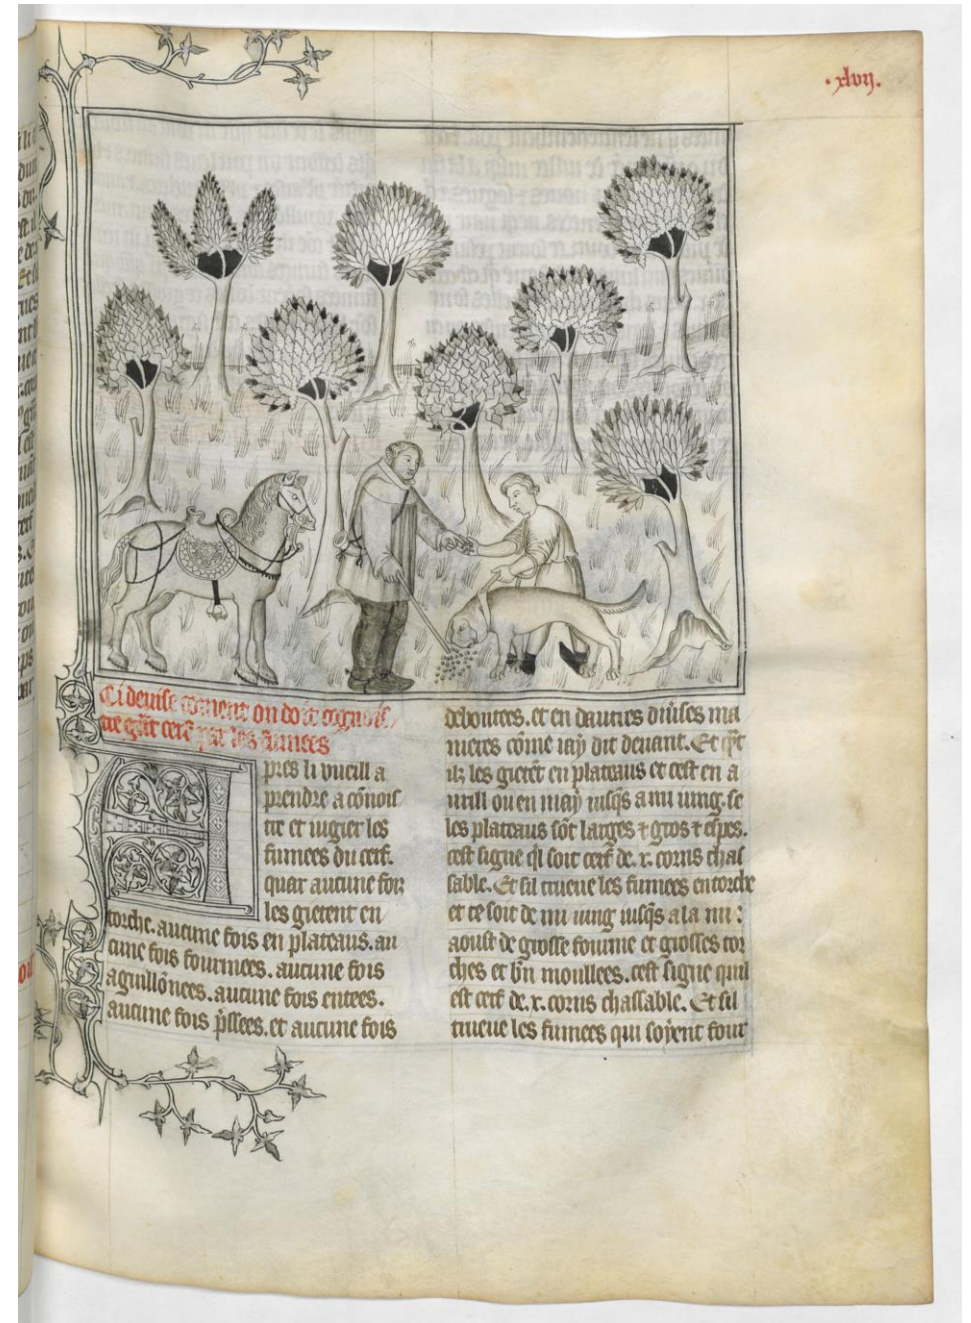 .xlvij.
Ci devise coment on doit cognois
tre grãt cerf par les fumees
pres li vueill a
prendre a cõnois
tre et iugier les
fumees du cerf.
quar aucune foiz
les gietent en
torche. aucune fois en plateaus. au
cune fois fourmees. aucune fois
aguillõnees. aucune fois entees.
aucune fois p̃ssees. et aucune fois
deboutees. et en dautres diuises ma
nieres cõme iay dit deuant. Et q̃t
ilz les gietẽt en plateaus et cest en a
urill ou en may iusq̃s a mi iuing. se
les plateaus sõt larges ⁊ gros ⁊ espes.
cest signe q̃l soit cerf de .x. corns chas
sable. Et sil trueue les fumees en torche
et ce soit de mi iuing iusq̃s a la mi
aoust de grosse fourme et grosses tor
ches et bñ moullees. cest signe quil
est cerf de .x. corns chassable. Et sil
trueue les fumees qui soyent four